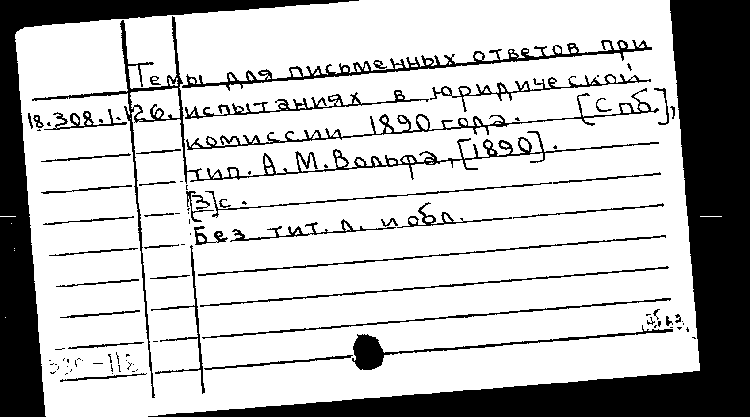 Темы для письменных ответов при
18.308.1.126. испытаниях в юридической
комиссии 1890 года. [Спб.],
тип. А.М.Вольфа, [1890].
[3]с.
Без тит. л. и обл.